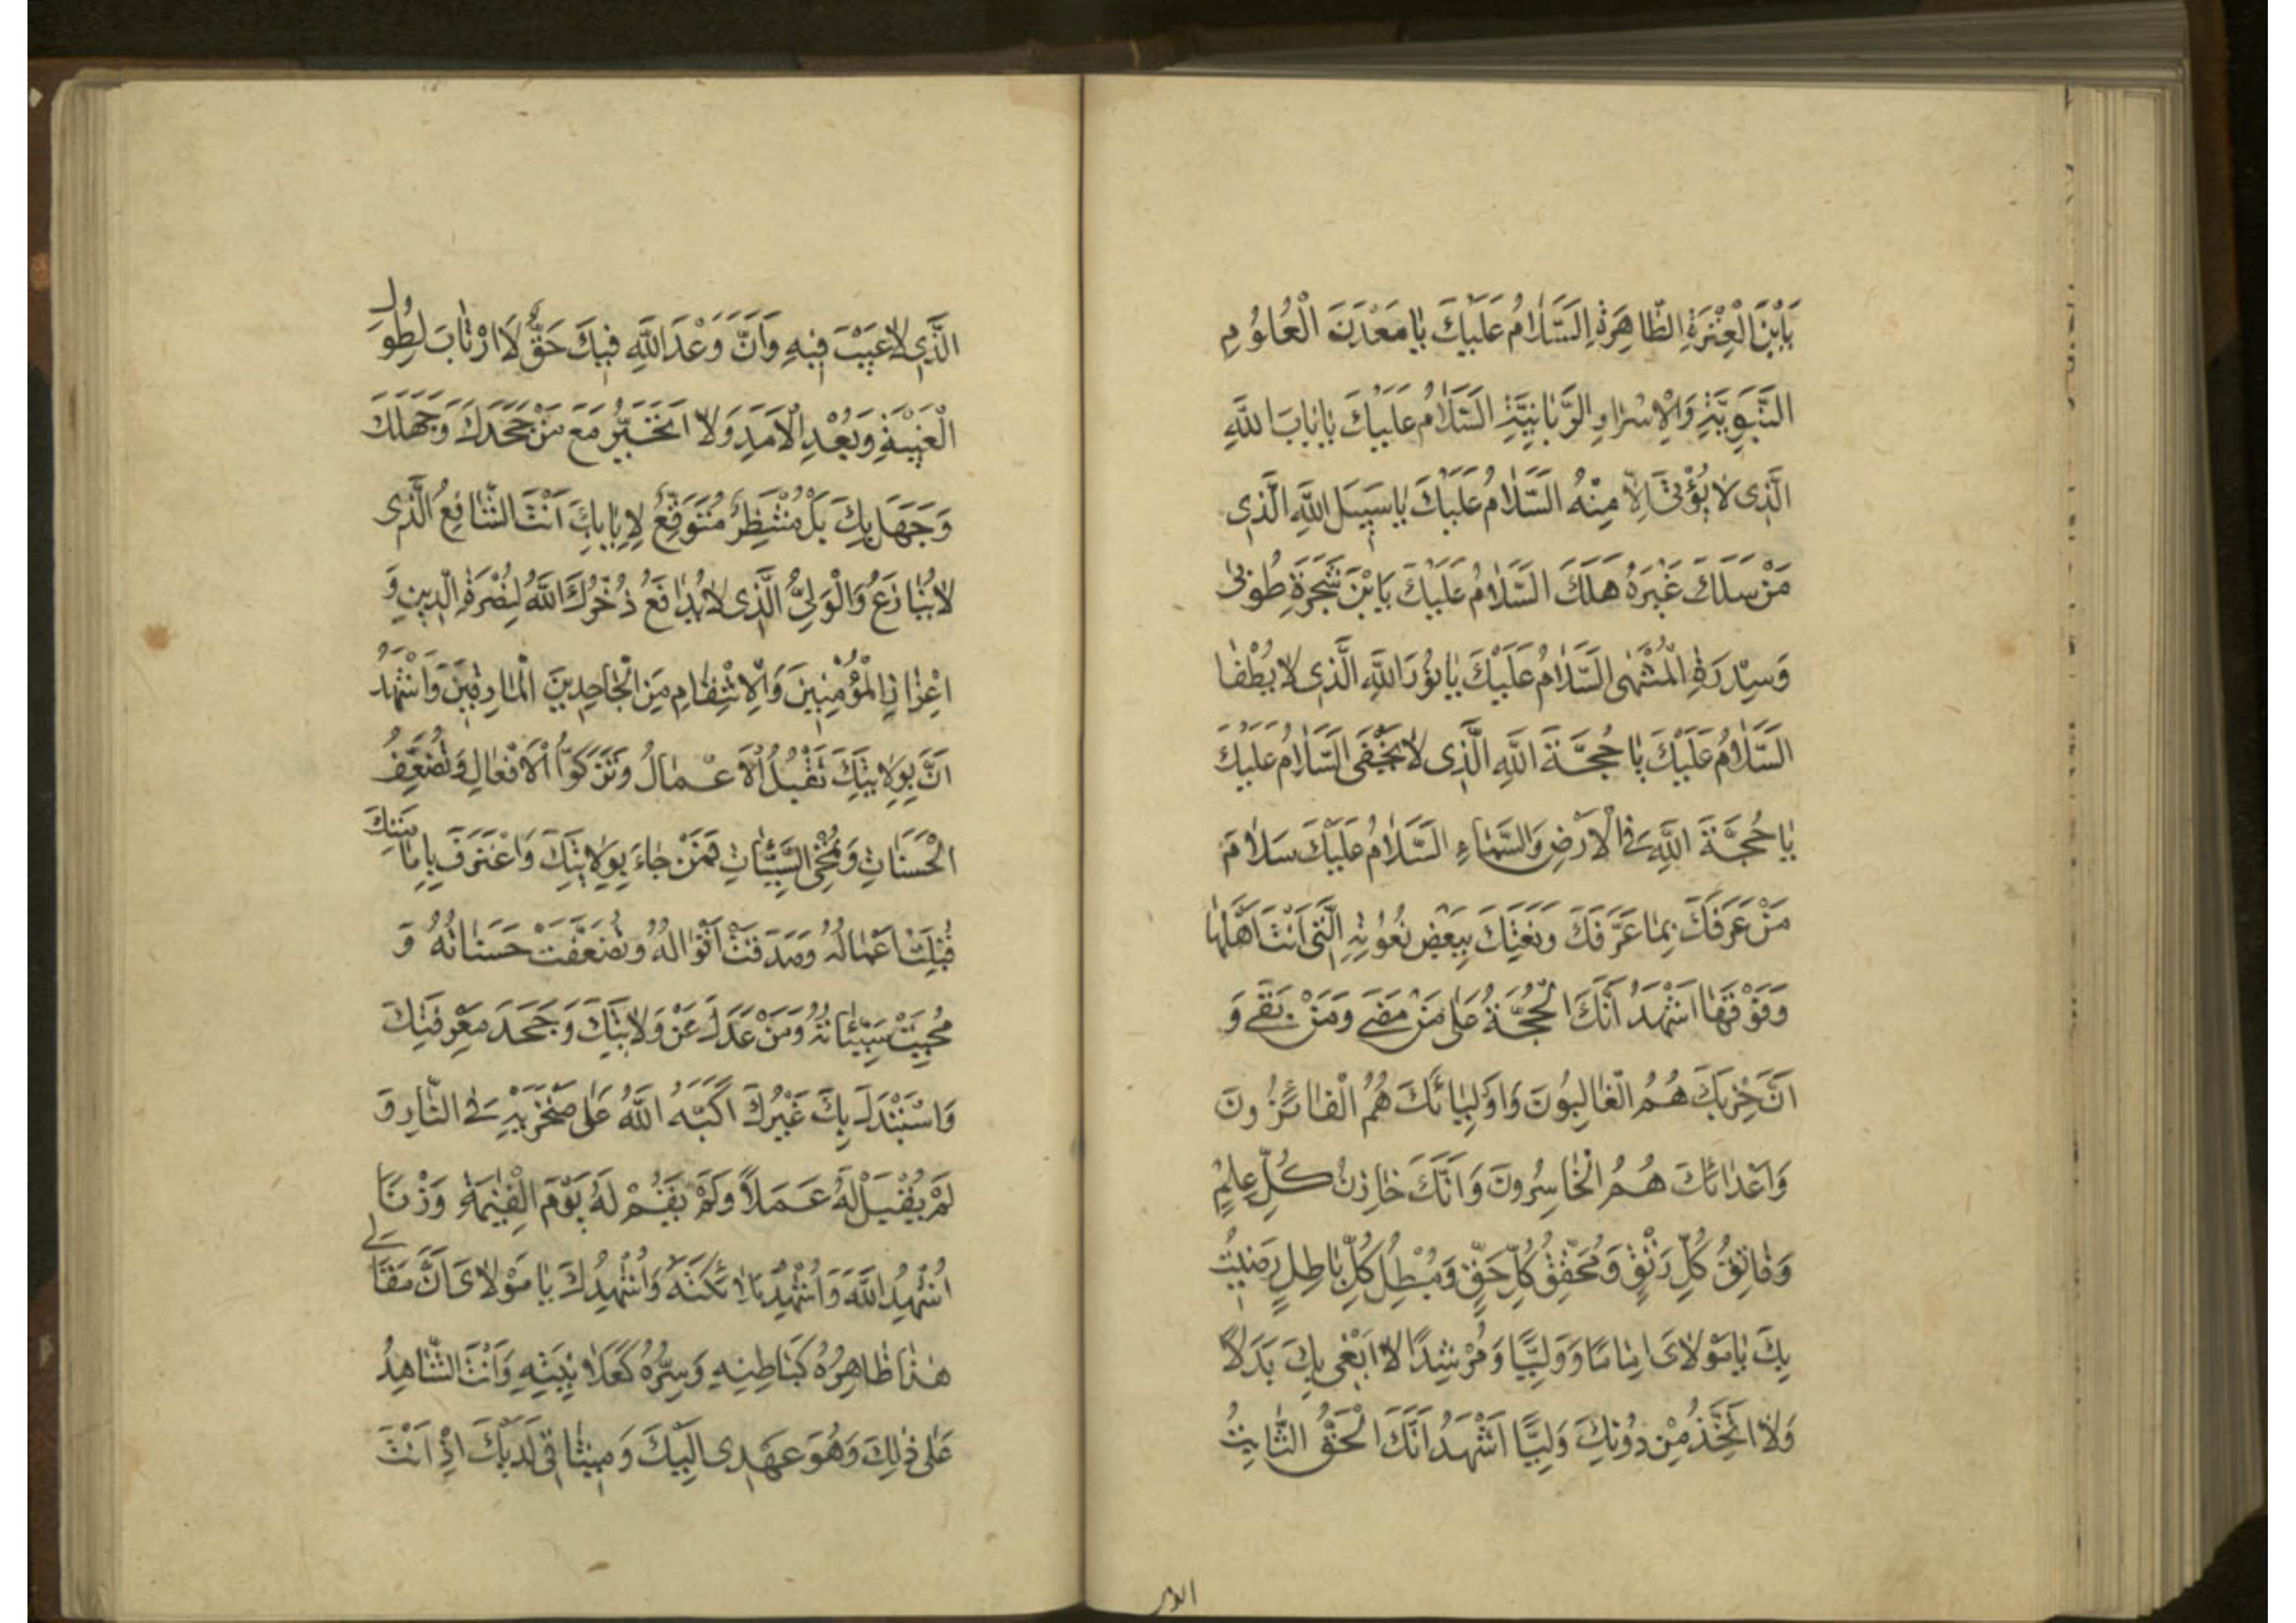 يَابْنَ الْعِتْرَةِ الطَّاهِرَةِ السَّلَامُ عَلَيْكَ يَا مَعْدَنَ الْعُلُومِ
النَّبَوِيَّةِ وَالْاِسْرَارِ الرَّبَّانِيَّةِ السَّلَامُ عَلَيْكَ يَا بَابَ اللهِ
الَّذِى لَا يُؤْتَى اِلَّا مِنْهُ السَّلَامُ عَلَيْكَ يَا سَبِيلَ اللهِ الَّذِى
مَنْ سَلَكَ غَيْرَهُ هَلَكَ السَّلَامُ عَلَيْكَ يَابْنَ شَجَرَةِ طُوبٰى
وَسِدْرَةِ الْمُنْتَهٰى السَّلَامُ عَلَيْكَ يَا نُورَ اللهِ الَّذِى لَا يُطْفَا
السَّلَامُ عَلَيْكَ يَا حُجَّةَ اللهِ الَّذِى لَا تَخْفَى السَّلَامُ عَلَيْكَ
يَا حُجَّةَ اللهِ فِى الْاَرْضِ وَالسَّمَاءِ السَّلَامُ عَلَيْكَ سَلَامَ
مَنْ عَرَفَكَ بِمَا عَرَّفَكَ وَنَعَتَكَ بِبَعْضِ نُعُوتِهِ الَّتِى اَنْتَ اَهْلُهَا
وَفَوْقَهَا اَشْهَدُ اَنَّكَ الْحُجَّةُ عَلٰى مَنْ مَضٰى وَمَنْ بَقٰى وَ
اَنَّ حِزْبَكَ هُمُ الْغَالِبُونَ وَاَوْلِيَائَكَ هُمُ الْفَائِزُونَ
وَاَعْدَائَكَ هُمُ الْخَاسِرُونَ وَاَنَّكَ خَازِنُ كُلِّ عِلْمٍ
وَفَاتِقُ كُلِّ رَتْقٍ وَمُحَقِّقُ كُلِّ حَقٍّ وَمُبْطِلُ كُلِّ بَاطِلٍ رَضِيتُ
بِكَ يَا مَوْلَاىَ اِمَامًا وَوَلِيًّا وَمُرْشِدًا لَا اَبْتَغِى بِكَ بَدَلًا
وَلَا اَتَّخِذُ مِنْ دُونِكَ وَلِيًّا اَشْهَدُ اَنَّكَ الْحَقُّ الثَّابِتُ
الَّذِى لَا عَيْبَ فِيهِ وَاَنَّ وَعْدَ اللهِ فِيكَ حَقٌّ لَا اَرْتَابَ لِطُولِ
الْغَيْبَةِ وَبُعْدِ الْاَمَدِ وَلَا اَتَحَيَّرُ مَعَ مَنْ جَحَدَكَ وَجَهِلَكَ
وَجَهِلَ بِكَ بَلْ مُنْتَظِرٌ مُتَوَقِّعٌ لِاِيَابِكَ اَنْتَ الشَّافِعُ الَّذِى
لَا يُنَازَعُ وَالْوَلِىُّ الَّذِى لَا يُدَافَعُ ذُخَرَكَ اللهُ لِنُصْرَةِ الدِّينِ وَ
اِعْزَازِ الْمُؤْمِنِينَ وَالْاِنْتِقَامِ مِنَ الْجَاحِدِينَ الْمَارِقِينَ وَاَشْهَدُ
اَنَّ بِوِلَايَتِكَ تُقْبَلُ الْاَعْمَالُ وَتَزَكَوُّا الْاَفْعَالِ وَتُضَعَّفُ
الْحَسَنَاتِ وَتُمْحَى السَّيِّئَاتِ فَمَنْ جَاءَ بِوِلَايَتِكَ وَاعْتَرَفَ بِاِمَامَتِكَ
قُبِلَتْ اَعْمَالُهُ وَصَدَقَتْ اَقْوَالُهُ وَتُضَعَّفَتْ حَسَنَاتُهُ وَ
مُحِيَتْ سَيِّئَاتُهُ وَمَنْ عَدَلَ عَنْ وَلَايَتِكَ وَجَحَدَ مَعْرِفَتِكَ
وَاسْتَبْدَلَ بِكَ غَيْرُكَ اَكَبَّهُ اللهُ عَلٰى مِنْخَرَيْهِ فِى النَّارِ وَ
لَمْ يُقْبَلْ لَهُ عَمَلًا وَلَمْ يُقَمْ لَهُ يَوْمَ الْقِيٰمَةِ وَزْنًا
اُشْهِدُ اللهَ وَاُشْهِدُ مَلَائِكَتَهُ وَاُشْهِدُكَ يَا مَوْلَاىَ اَنَّ مَقَالِى
هٰذَا ظَاهِرُهُ كَبَاطِنِهِ وَسِرُّهُ كَعَلَانِيَتِهِ وَاَنْتَ الشَّاهِدُ
عَلٰى ذٰلِكَ وَهُوَ عَهْدِى اِلَيْكَ وَمِيثَاقِى لَدَيْكَ اِذْ اَنْتَ